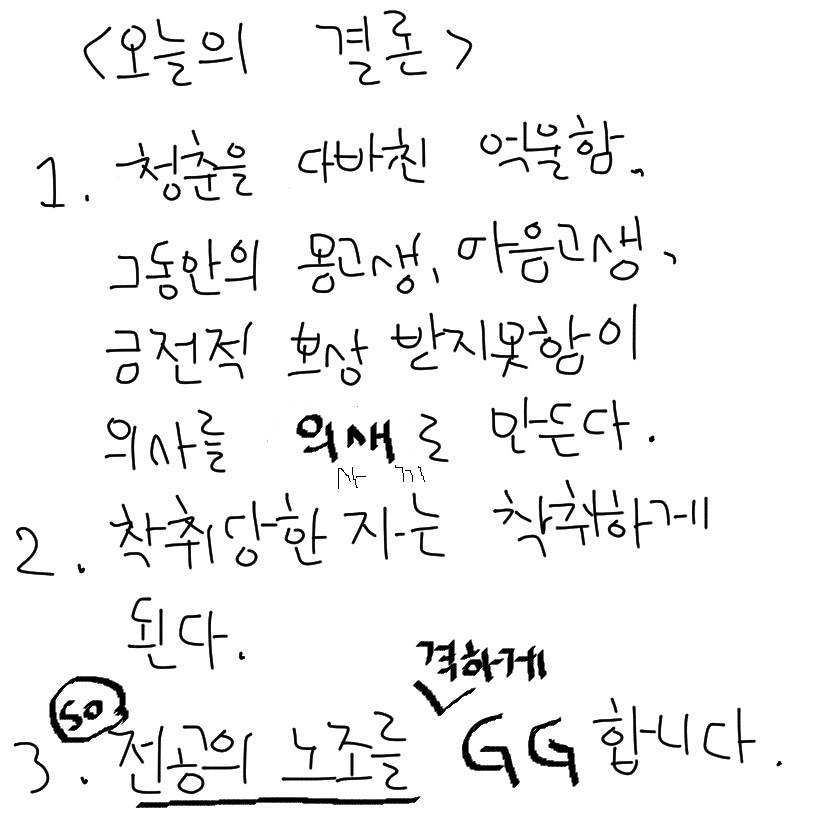 <오늘의 결론>
1. 청춘을 다바친 억울함,
그동안의 몸고생, 마음고생,
금전적 보상 받지못함이
의사를 의새로 만든다.
사 끼
2. 착취당한 자는 착취하게
된다.
격하게
3. so 전공의 노조를 GG합니다.